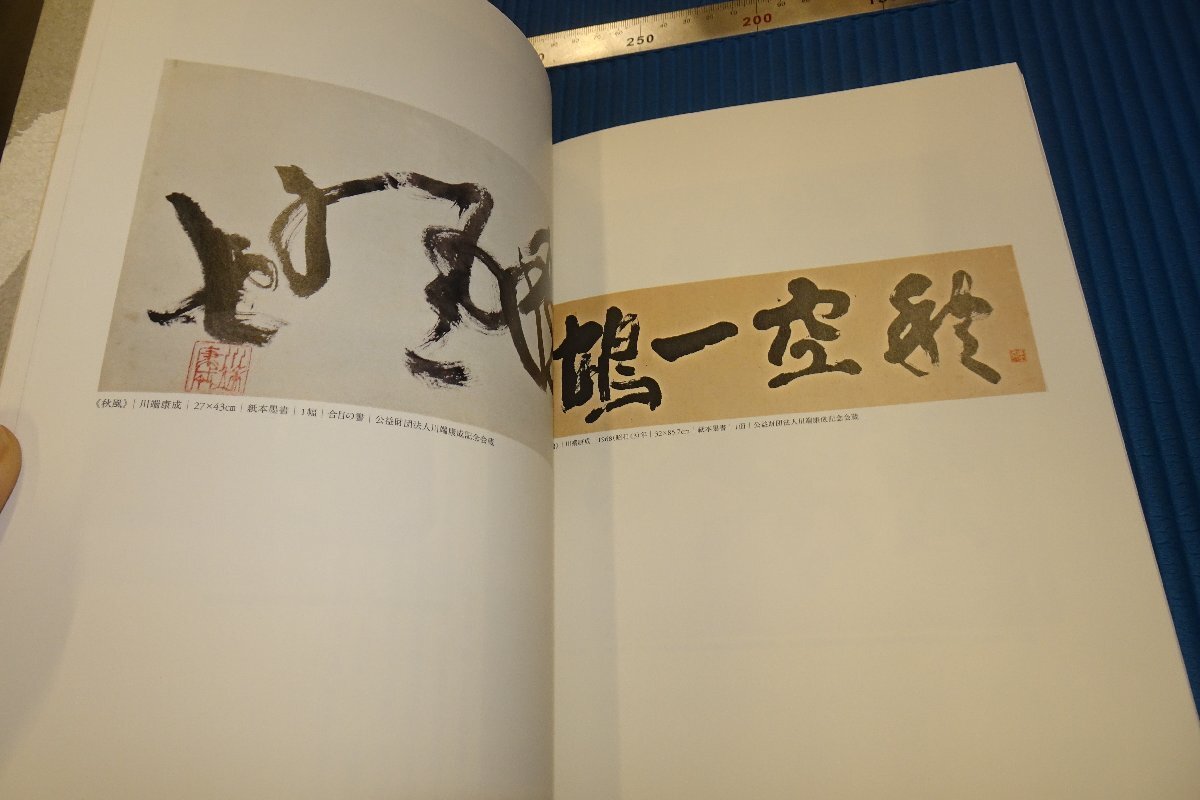 250
200
川端康成
《秋風》｜川端康成｜27×43cm｜紙本墨書｜1幅｜公益財団法人川端康成記念会蔵
秋空一鶴
川端康成｜1968(昭和43)年｜32×85.7cm｜紙本墨書｜1面｜公益財団法人川端康成記念会蔵